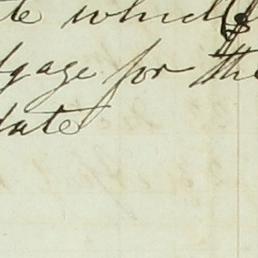 te which
gage for the
date